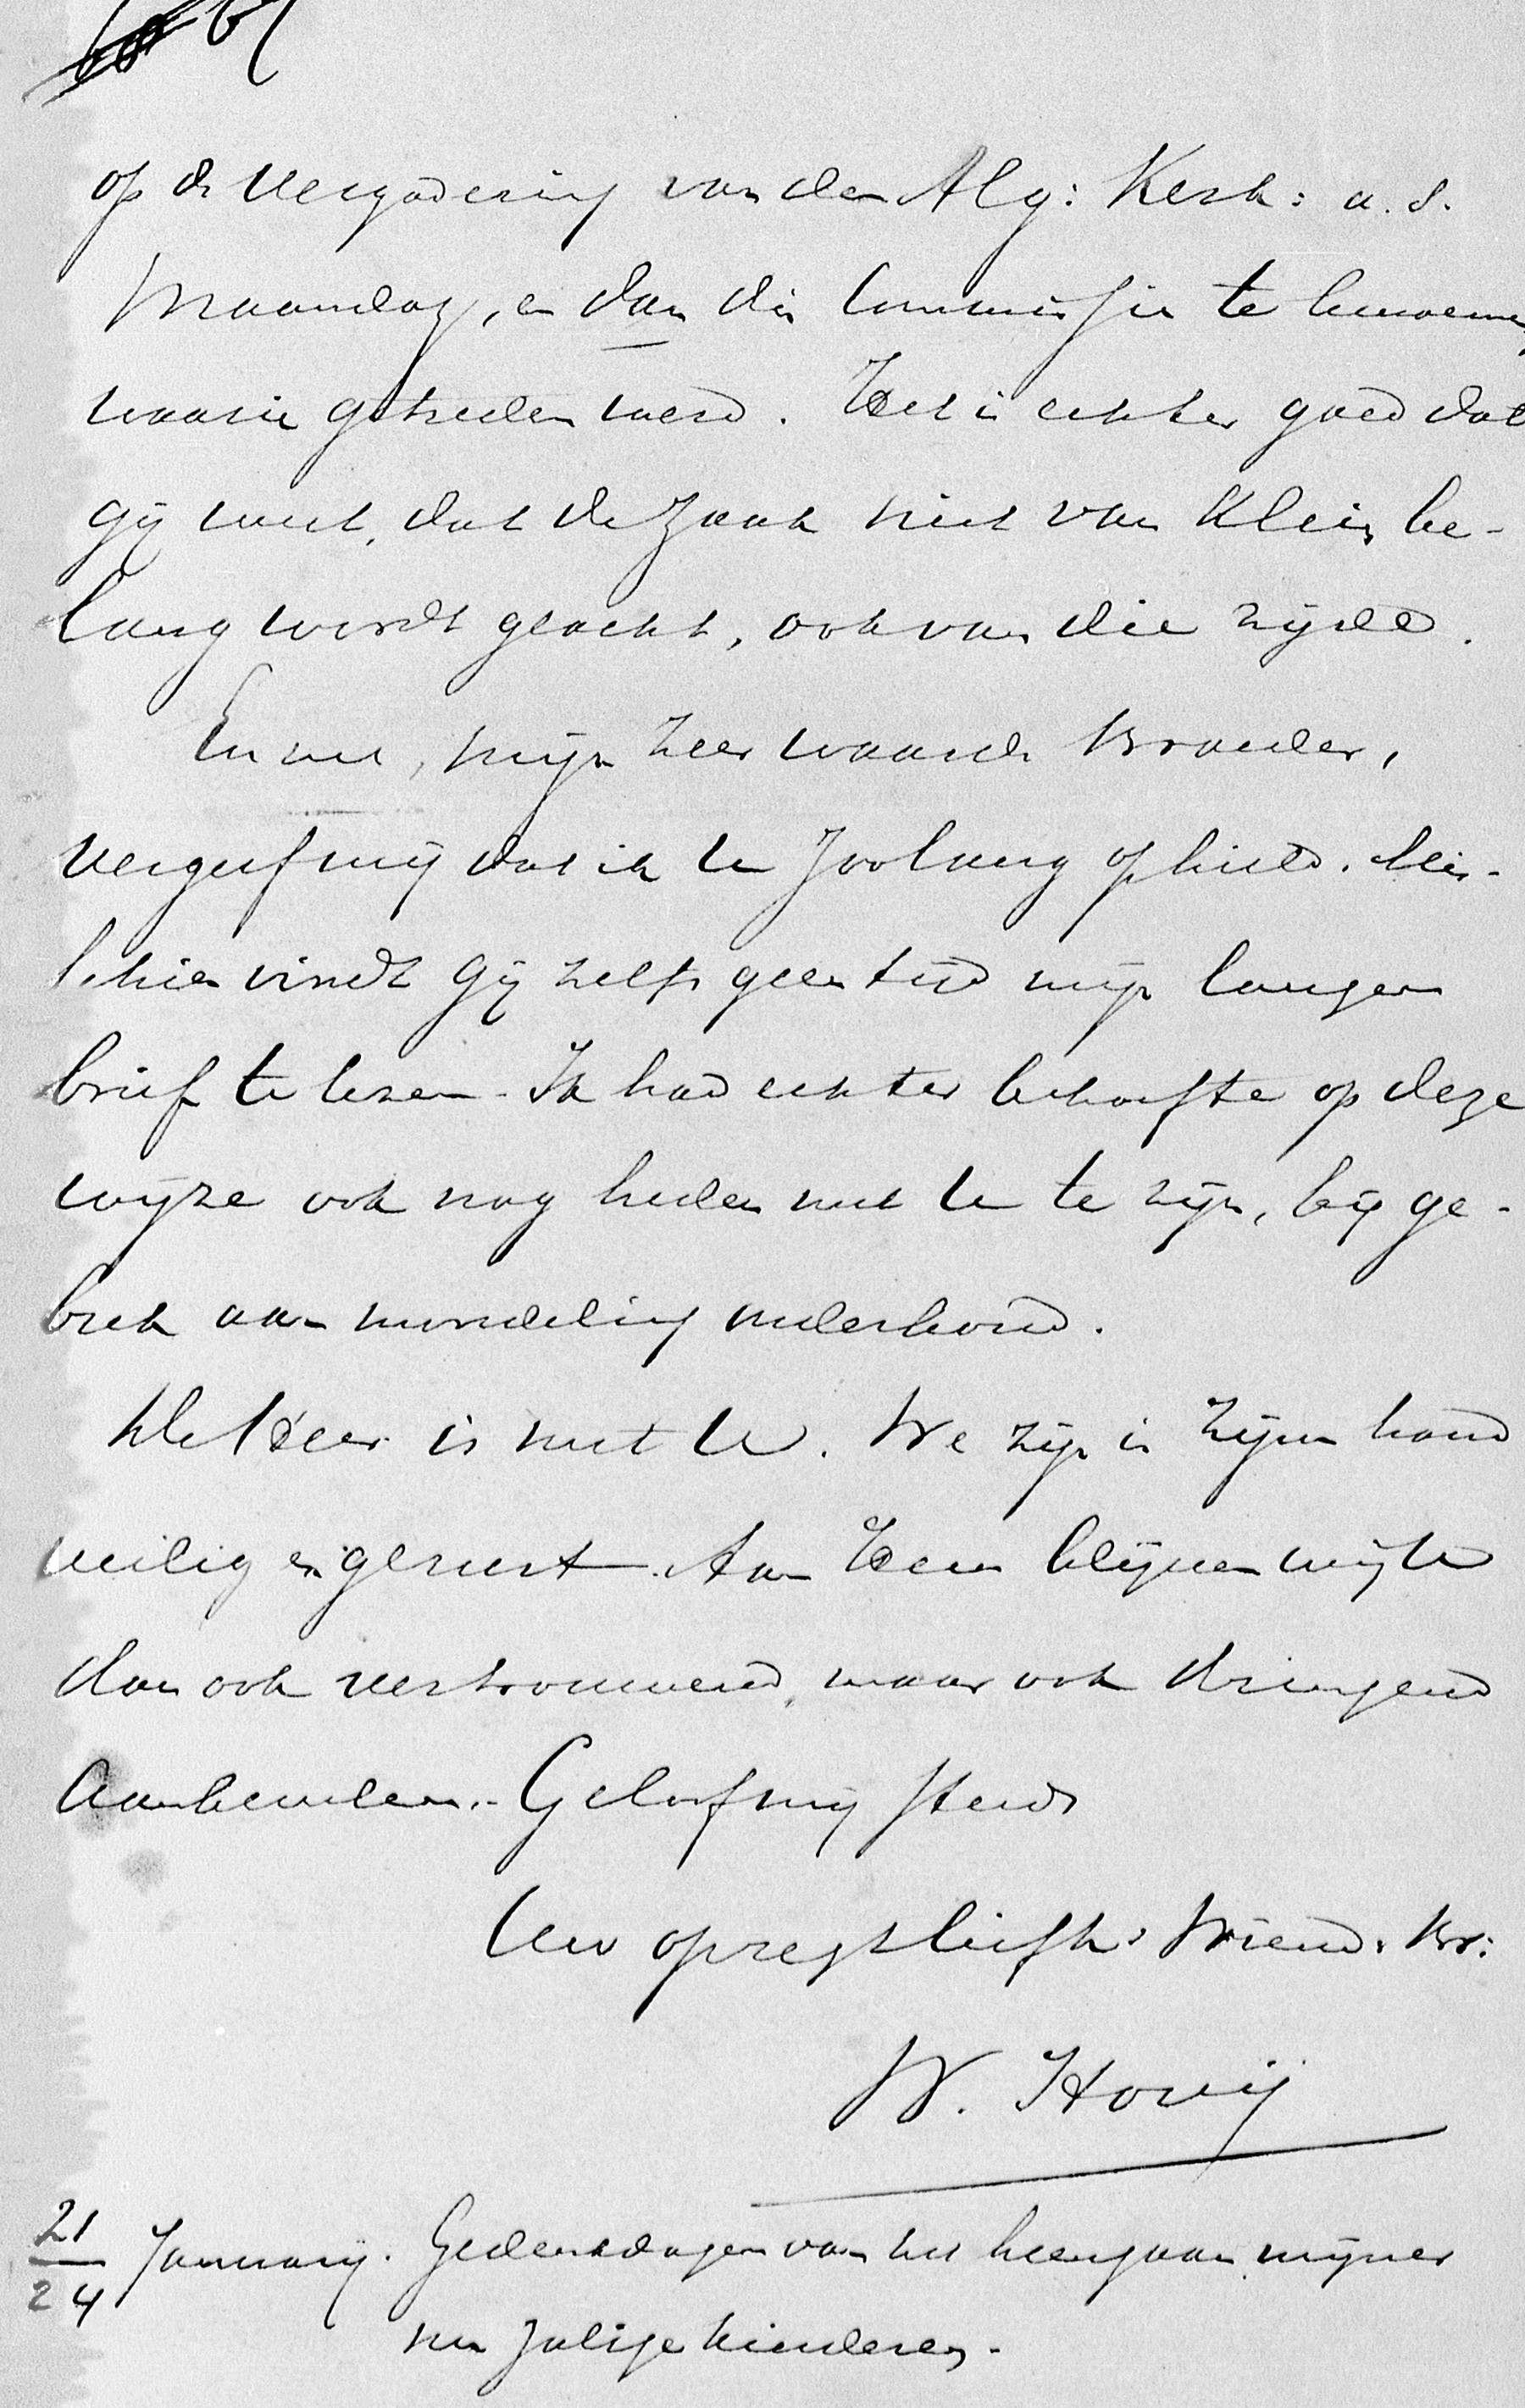 op de Vergadering van den Alg: Kerk: a. s.
Maandag, en dan die Commissie te benoemen,
waarin getreden werd. Het is echter goed dat
gij weet, dat de zaak niet van klein be-
lang wordt geacht, ook van die zijde.
En nu, mijn zeer waarde Broeder,
vergeef mij dat ik U zoolang ophield. Mis-
schien vindt Gij zelfs geen tijd mijn langen
brief te lezen. Ik had echter behoefte op deze
wijze ook nog heden met U te zijn, bij ge-
brek aan mondeling onderhoud.
De Heer is met U. We zijn in Zijne hand
veilig en gerust. Aan Hem blijven wij U
dan ook vertrouwend, maar ook dringend
aanbevelen. Geloof mij steeds
Uw opregtliefh: Vriend. Br:
W. Hovij
21/24 Januarij. Gedenkdagen van het heengaan mijner
nu zalige kinderen.